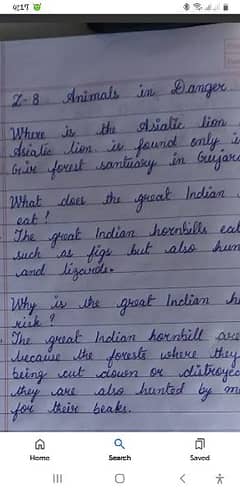 9:17
L-8 Animals in Danger
Where is the Asiatic lion
Asiatic lion is found only
Gir forest santuary in Gujara
What does the great Indian
eat?
The great Indian hornbills eat
such as figs but also hun
and lizards.
Why is the great Indian h
risk?
The great Indian hornbill are
because the forests where they
being cut down or distroyed
they are also hunted by m
for their beaks.
Home Search Saved